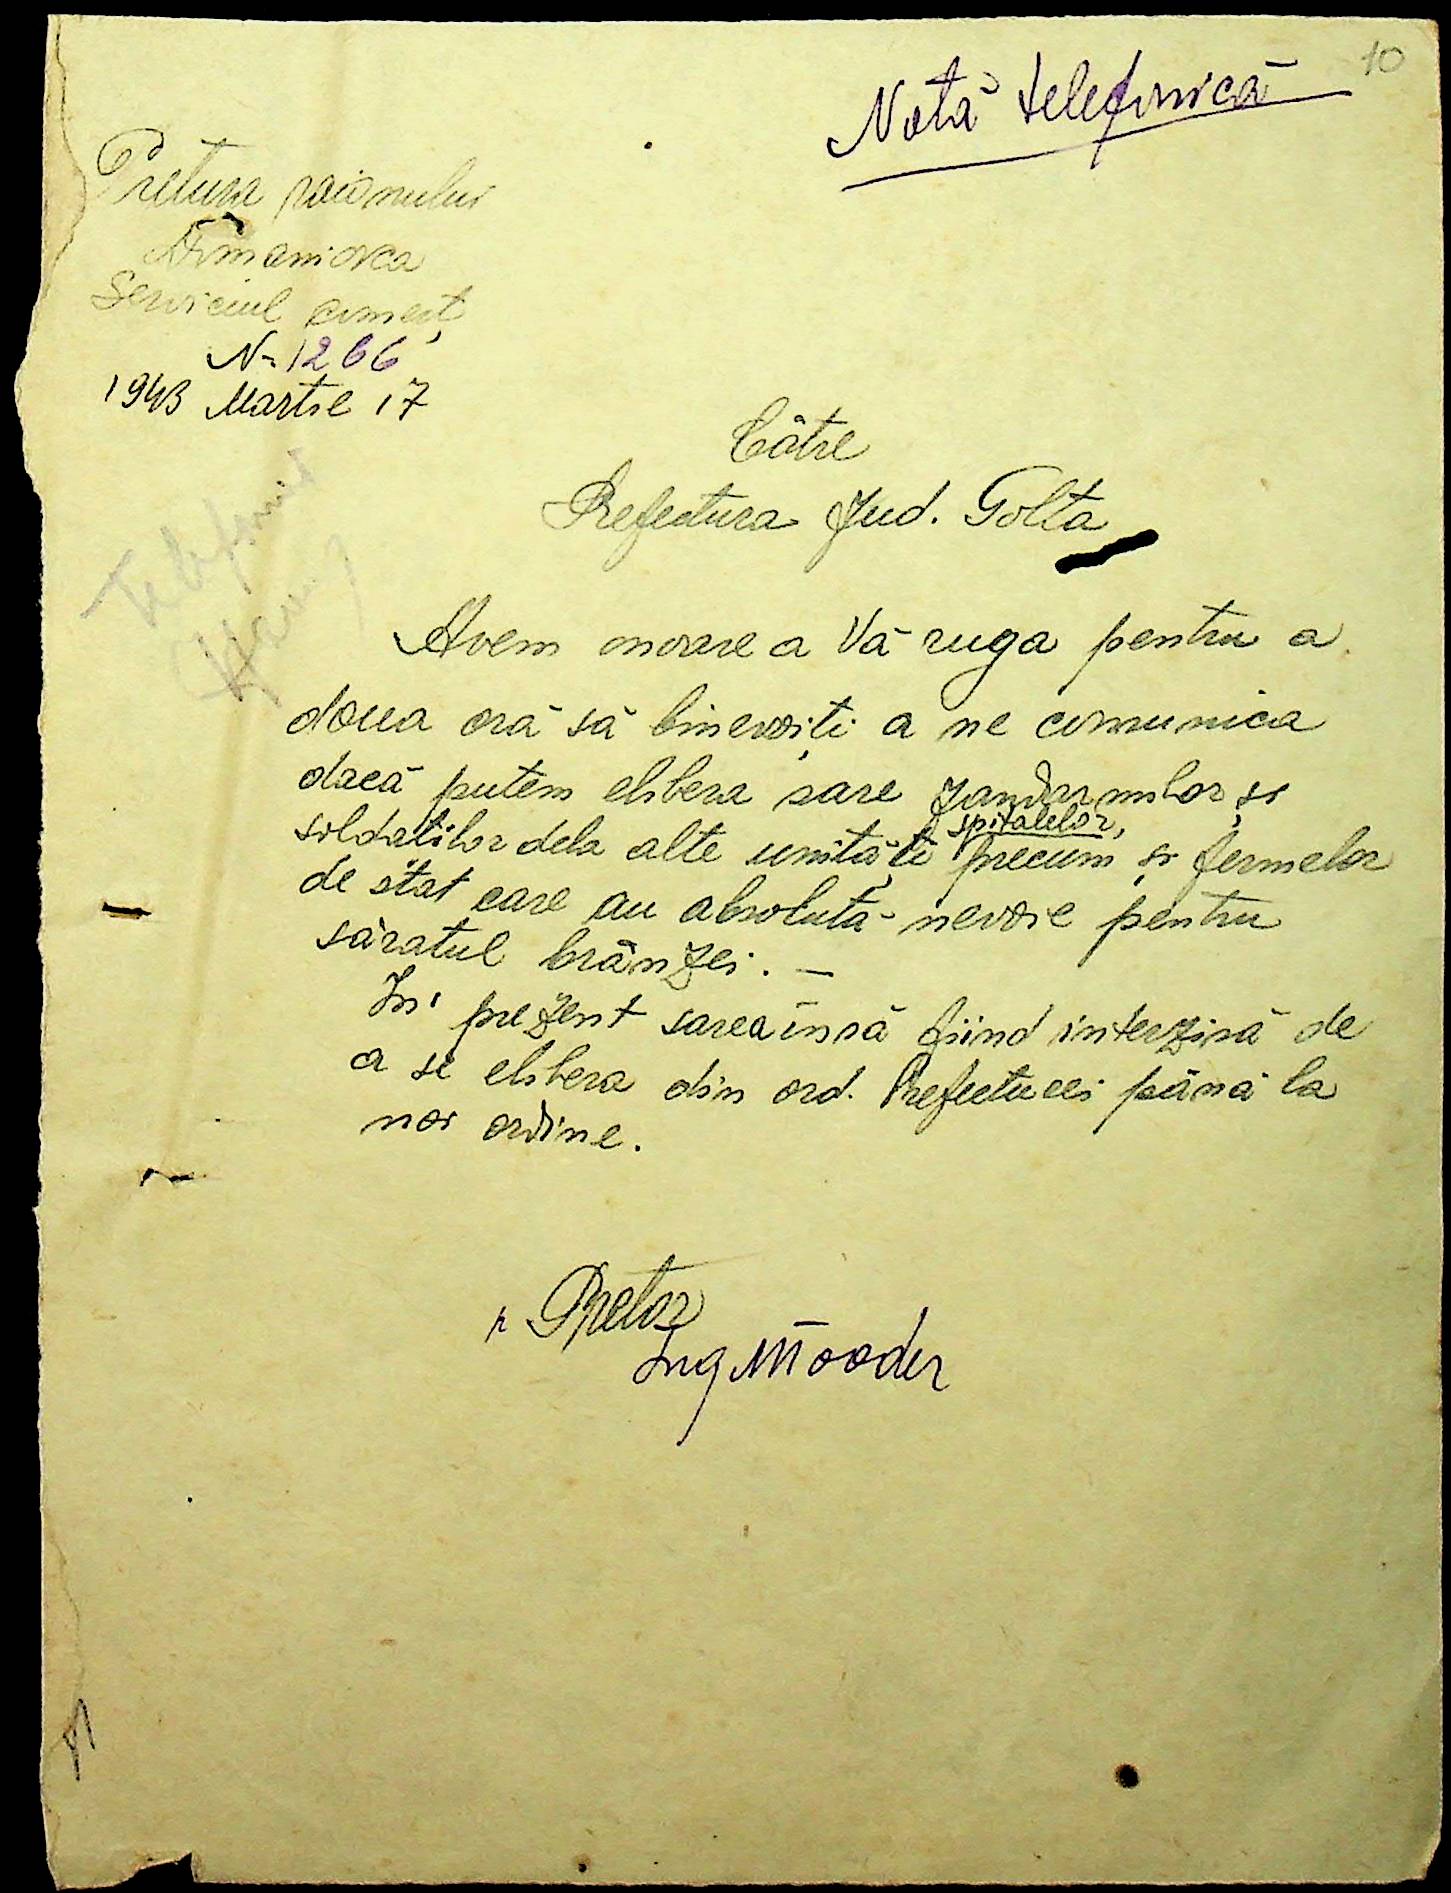 10
Notă telefonică
Pretura raionului
Serviciul comerț
N-1266
1943 Martie 17
Telefonat
Către
Prefectura Jud. Golta
Avem onoare a Vă ruga pentru a
doua oră să binevoiți a ne comunica
dacă putem elibera sare jandarmilor și
spitalelor,
soldatilor dela alte unități precum și fermelor
de stat care au absolută nevoie pentru
săratul brânzei. —
In prezent sarea însă fiind interzisă de
a se elibera din ord. Prefecturei până la
noi ordine.
p Pretor
Ing